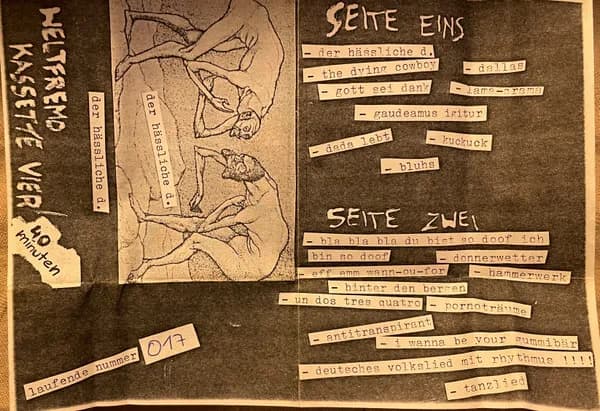 WELTFREMD
KASSETTE VIER!
40
minuten
der hässliche d.
der hässliche d.
laufende nummer 017
SEITE EINS
- der hässliche d.
- the dying cowboy
- dallas
- gott sei dank
- lama-drama
- gaudeamus igitur
- dada lebt
- kuckuck
- bluhs
SEITE ZWEI
- bla bla bla du bist so doof ich
bin so doof
- donnerwetter
- eff emm wann-ou-for
- hammerwerk
- hinter den bergen
- un dos tres quatro
- pornoträume
- antitranspirant
- i wanna be your gummibär
- deutsches volkslied mit rhythmus !!!!
- tanzlied